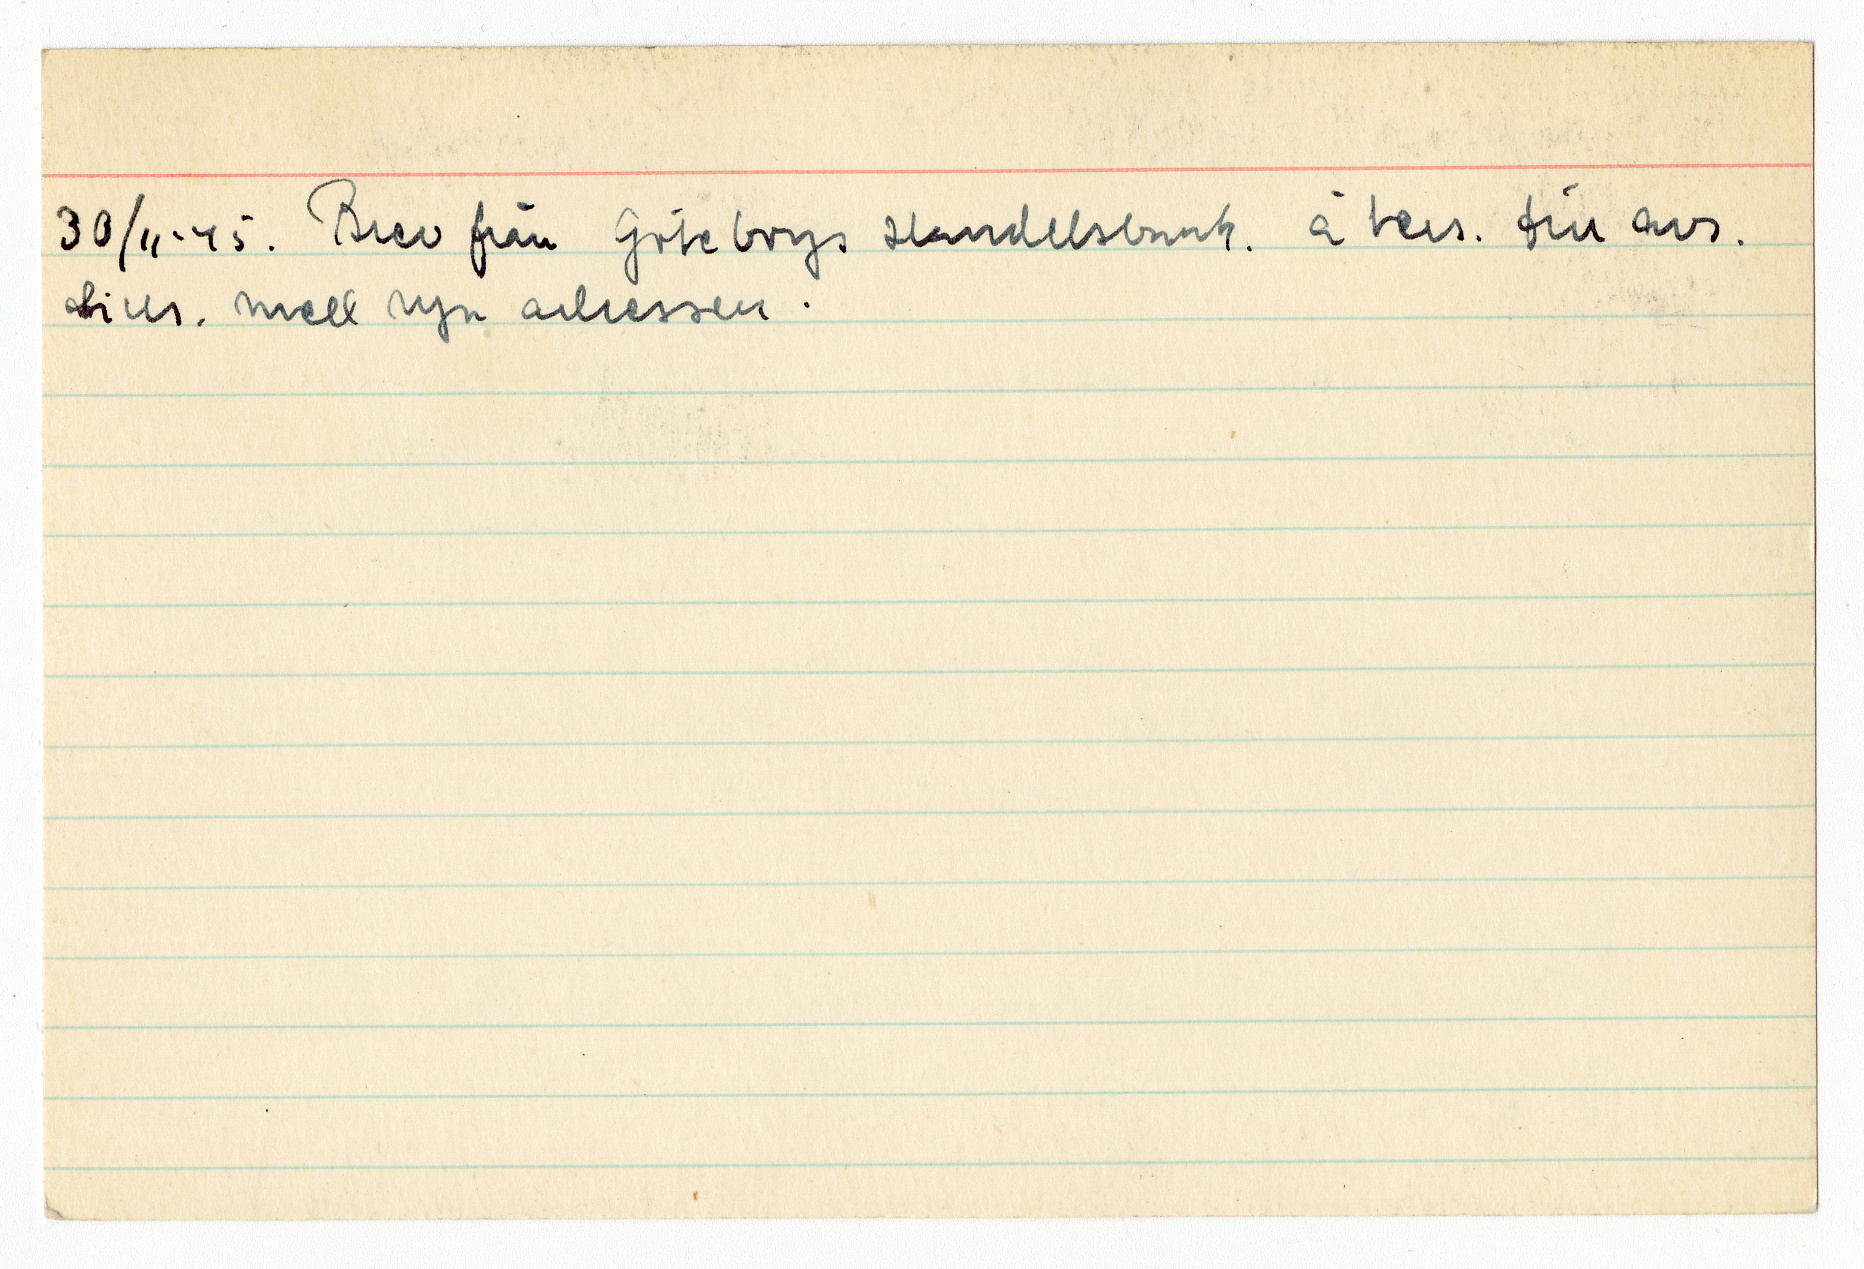 30/11-45. Brev från Göteborgs Handelsbank. åters. till avs.
tills. med nya adressen.